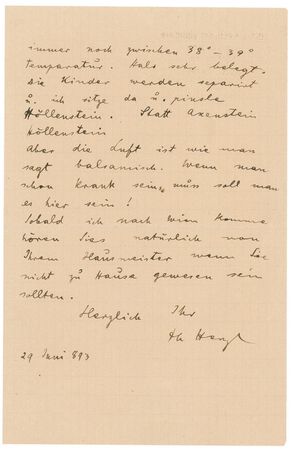 immer noch zwischen 38° - 39°
Temperatur. Hals sehr belegt.
Die Kinder werden separirt
u. ich sitze da u. pinsle
Höllenstein. Statt Axenstein
Höllenstein
Aber die Luft ist wie man
sagt balsamisch. Wenn man
schon krank sein muss soll man
es hier sein!
Sobald ich nach Wien komme
hören Sies natürlich von
Ihrem Hausmeister wenn Sie
nicht zu Hause gewesen sein
sollten.
Herzlich Ihr
Th Herzl
29 Juni 893